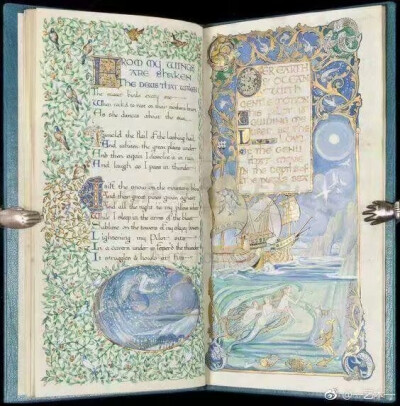 FROM MY WINGS
ARE SHAKEN
THE DEWS THAT WAKEN
The sweet buds every one
When rocked to rest on their mother's breast
As she dances about the sun
I wield the flail of the lashing hail
And whiten the green plains under
And then again I dissolve it in rain
And laugh as I pass in thunder
I sift the snow on the mountains below
And their great pines groan aghast
And all the night tis my pillow white
While I sleep in the arms of the blast
Sublime on the towers of my skiey bowers
Lightening my Pilot sits
In a cavern under is fettered the thunder
It struggles & howls at fits
OVER EARTH
& OCEAN
WITH
GENTLE MOTION
THIS
IS
GUIDING ME
LURED BY THE
LOVE
OF THE GENII
THAT MOVE
IN THE DEPTHS OF
THE PURPLE SEA